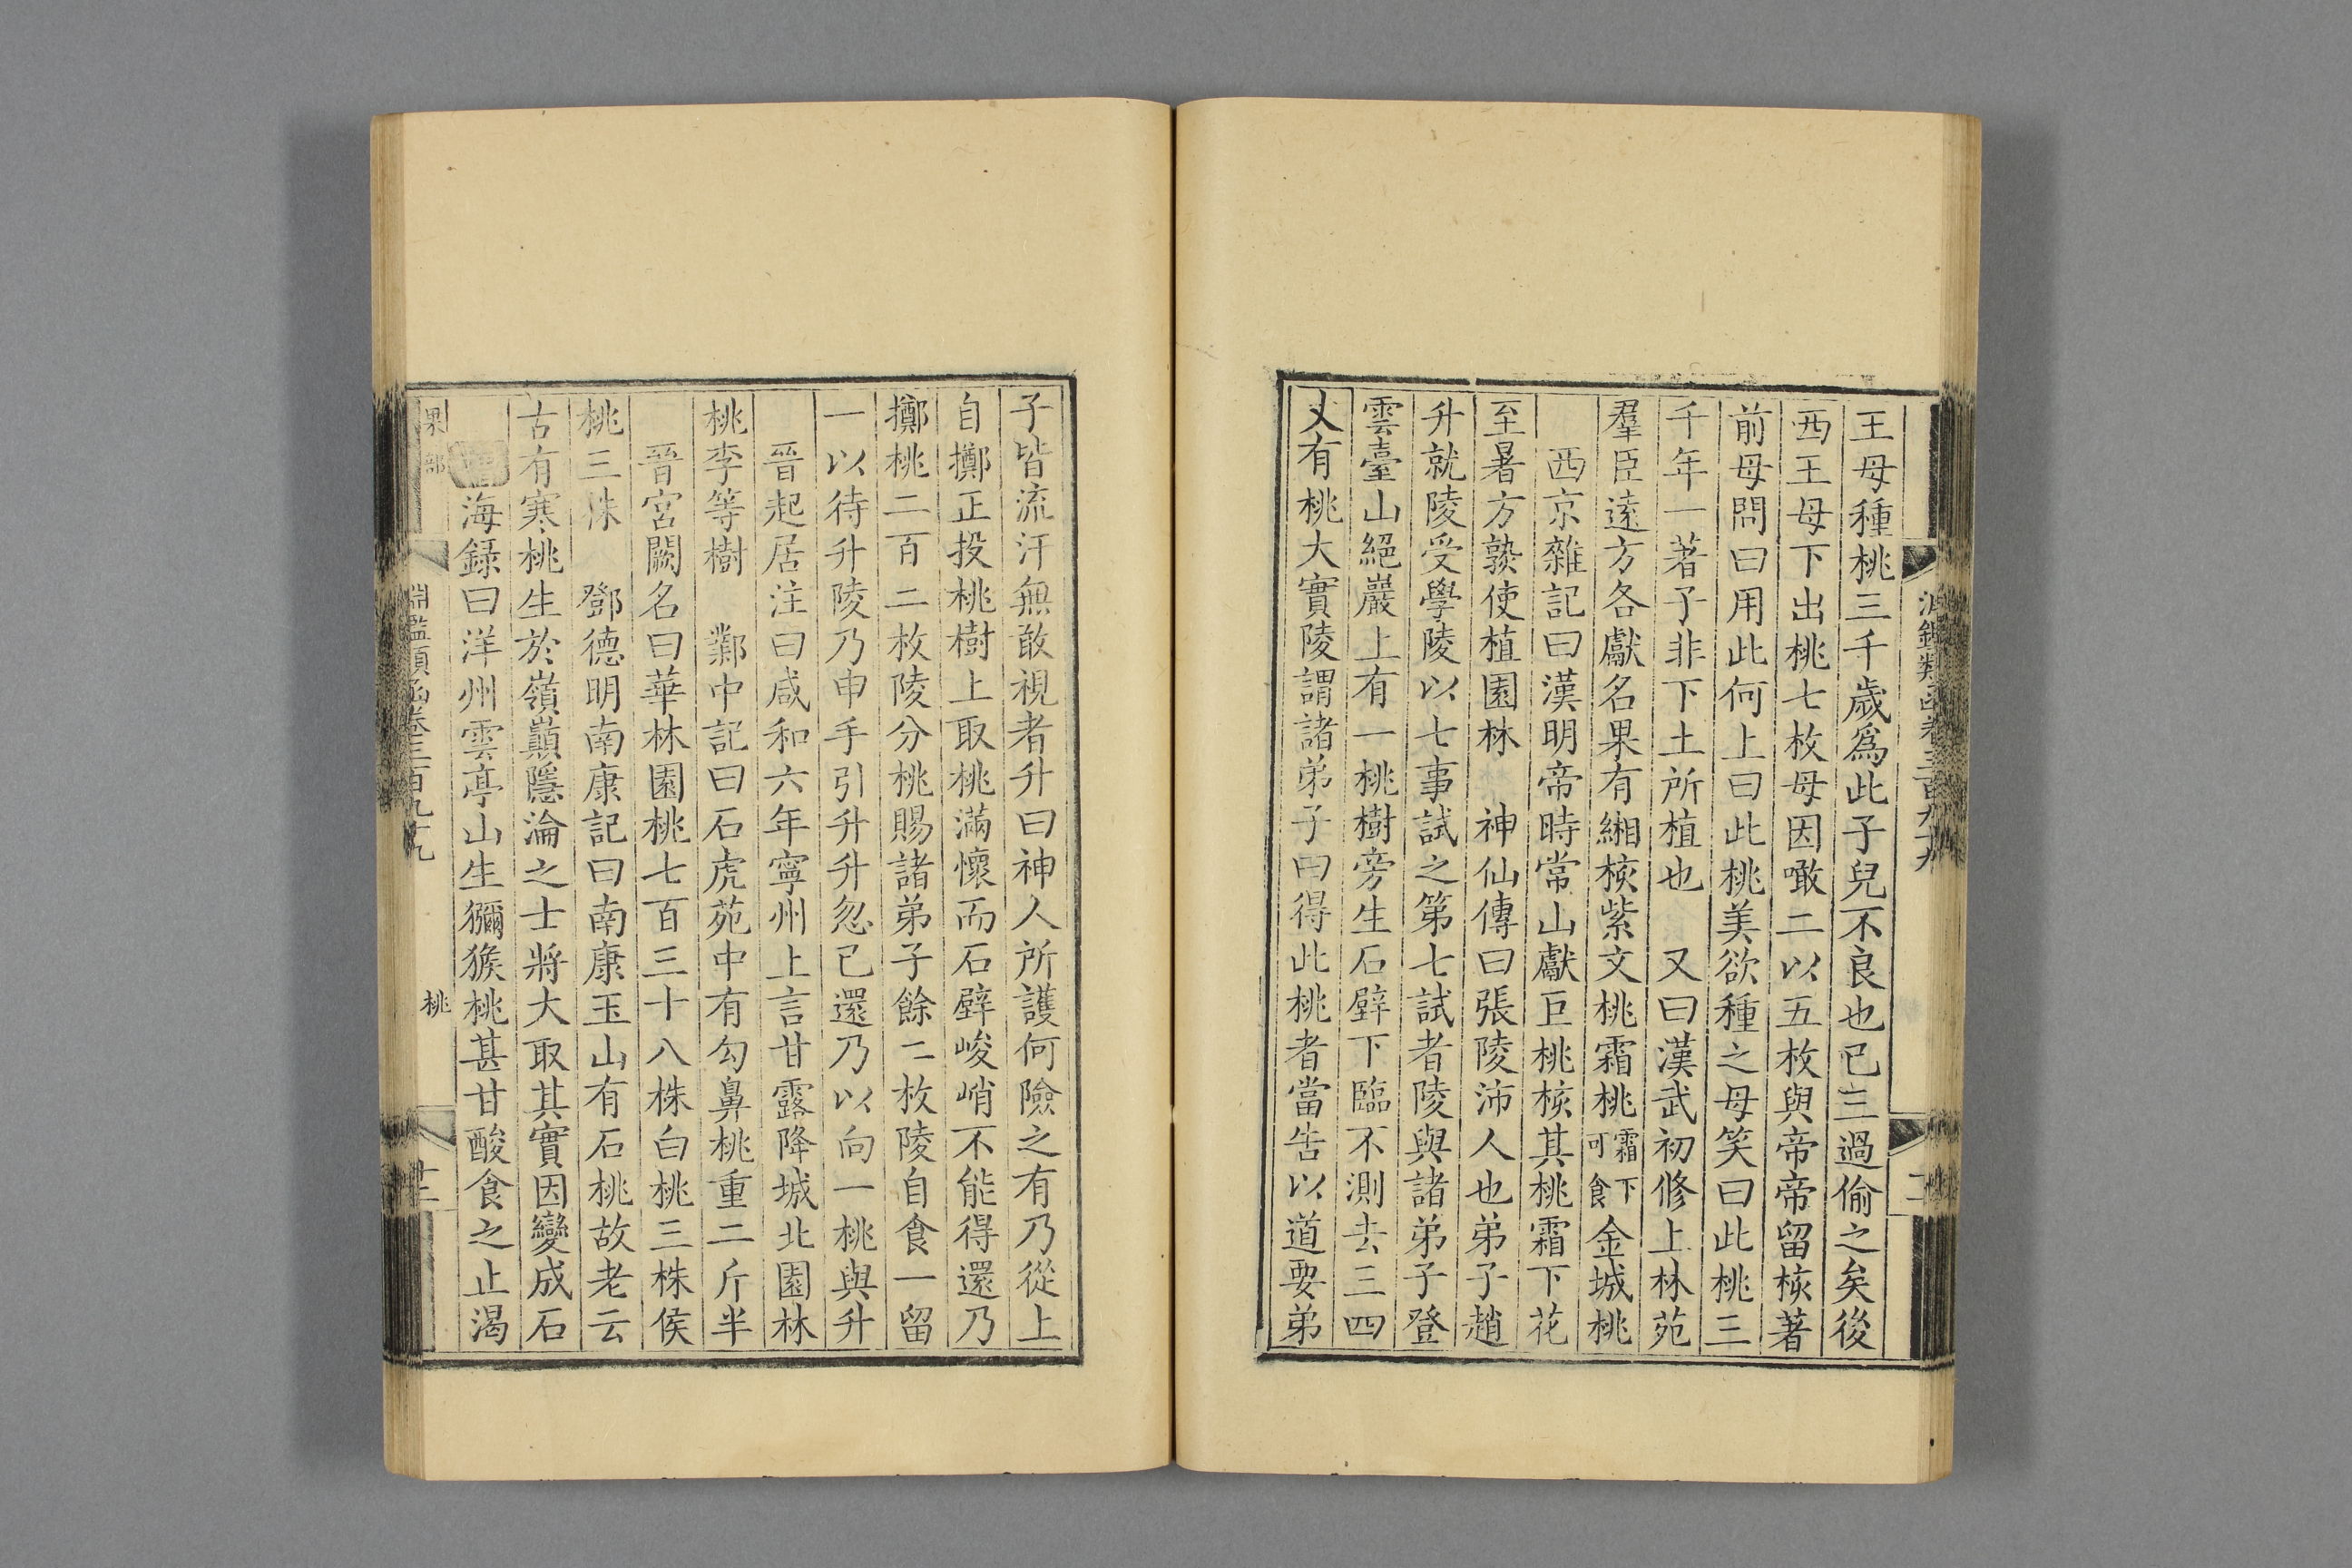 王母種桃三千歲爲此子兒不良也已三過偷之矣後
西王母下出桃七枚母因噉二以五枚與帝帝留核著
前母問曰用此何上曰此桃美欲種之母笑曰此桃三
千年一著子非下土所植也　又曰漢武初修上林苑
羣臣遠方各獻名果有緗核紫文桃霜桃霜下可食金城桃
西京雜記曰漢明帝時常山獻巨桃核其桃霜下花
至暑方熟使植園林　神仙傳曰張陵沛人也弟子趙
升就陵受學陵以七事試之第七試者陵與諸弟子登
雲臺山絕巖上有一桃樹旁生石壁下臨不測去三四
丈有桃大實陵謂諸弟子曰得此桃者當告以道要弟
子皆流汗無敢視者升曰神人所護何險之有乃從上
自擲正投桃樹上取桃滿懷而石壁峻峭不能得還乃
擲桃二百二枚陵分桃賜諸弟子餘二枚陵自食一留
一以待升陵乃申手引升升忽已還乃以向一桃與升
晉起居注曰咸和六年寧州上言甘露降城北園林
桃李等樹　鄴中記曰石虎苑中有勾鼻桃重二斤半
晉宮闕名曰華林園桃七百三十八株白桃三株侯
桃三株　鄧德明南康記曰南康玉山有石桃故老云
古有寒桃生於嶺巔隱淪之士將大取其實因變成石
海録曰洋州雲亭山生獼猴桃甚甘酸食之止渴
果部
淵鑑類函卷三百九十九
桃